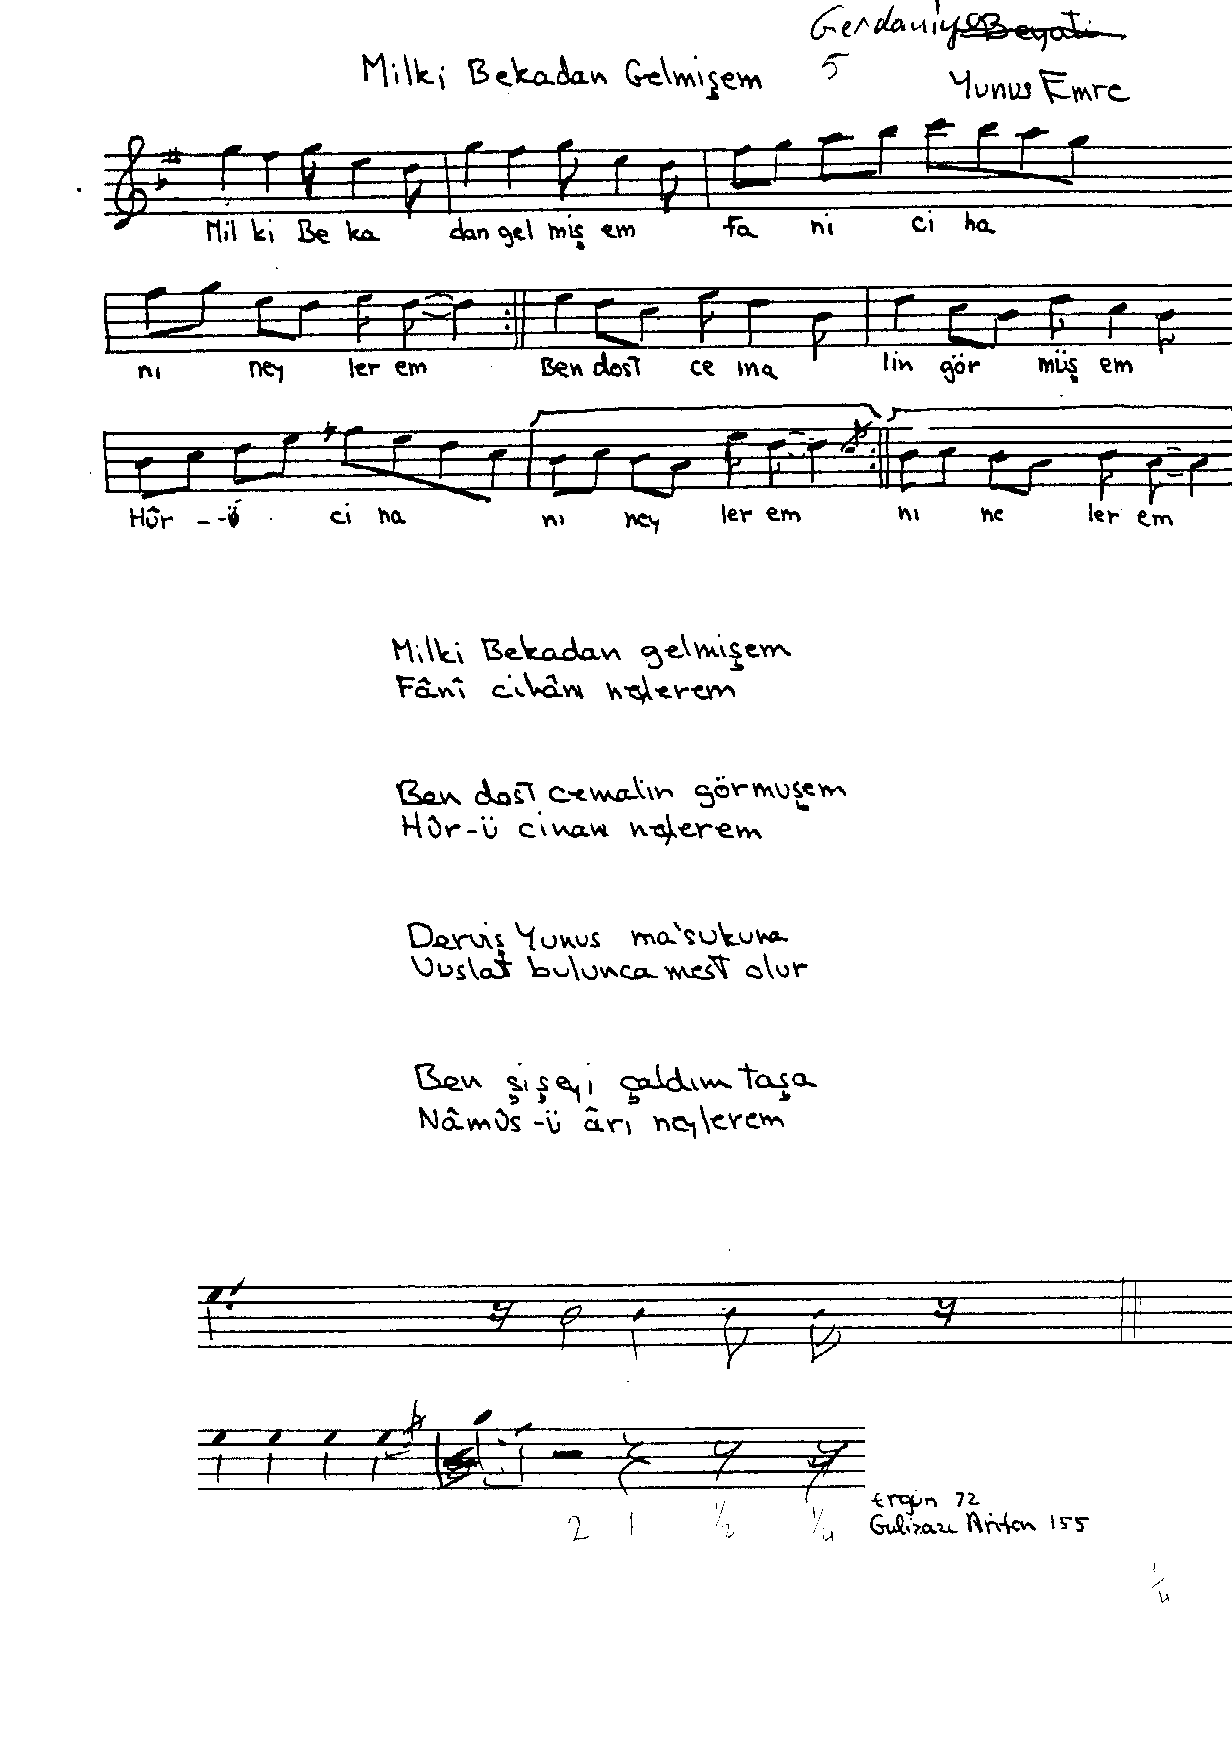 Gerdaniye Beyati
Milki Bekadan Gelmişem 5
Yunus Emre
Mil ki Be ka dan gel miş em fa ni ci ha
nı ney ler em Ben dost ce ma lin gör müş em
Hûr - - ü ci na nı ney ler em nı ne ler em
Milki Bekadan gelmişem
Fânî cihânı neylerem
Ben dost cemalin görmuşem
Hûr-ü cinanı neylerem
Derviş Yunus ma'şukuna
Vuslat bulunca mest olur
Ben şişeyi çaldım taşa
Nâmûs-ü ârı neylerem
2 1 1/2 1/4
Ergün 72
Gulizarı 155
1/4